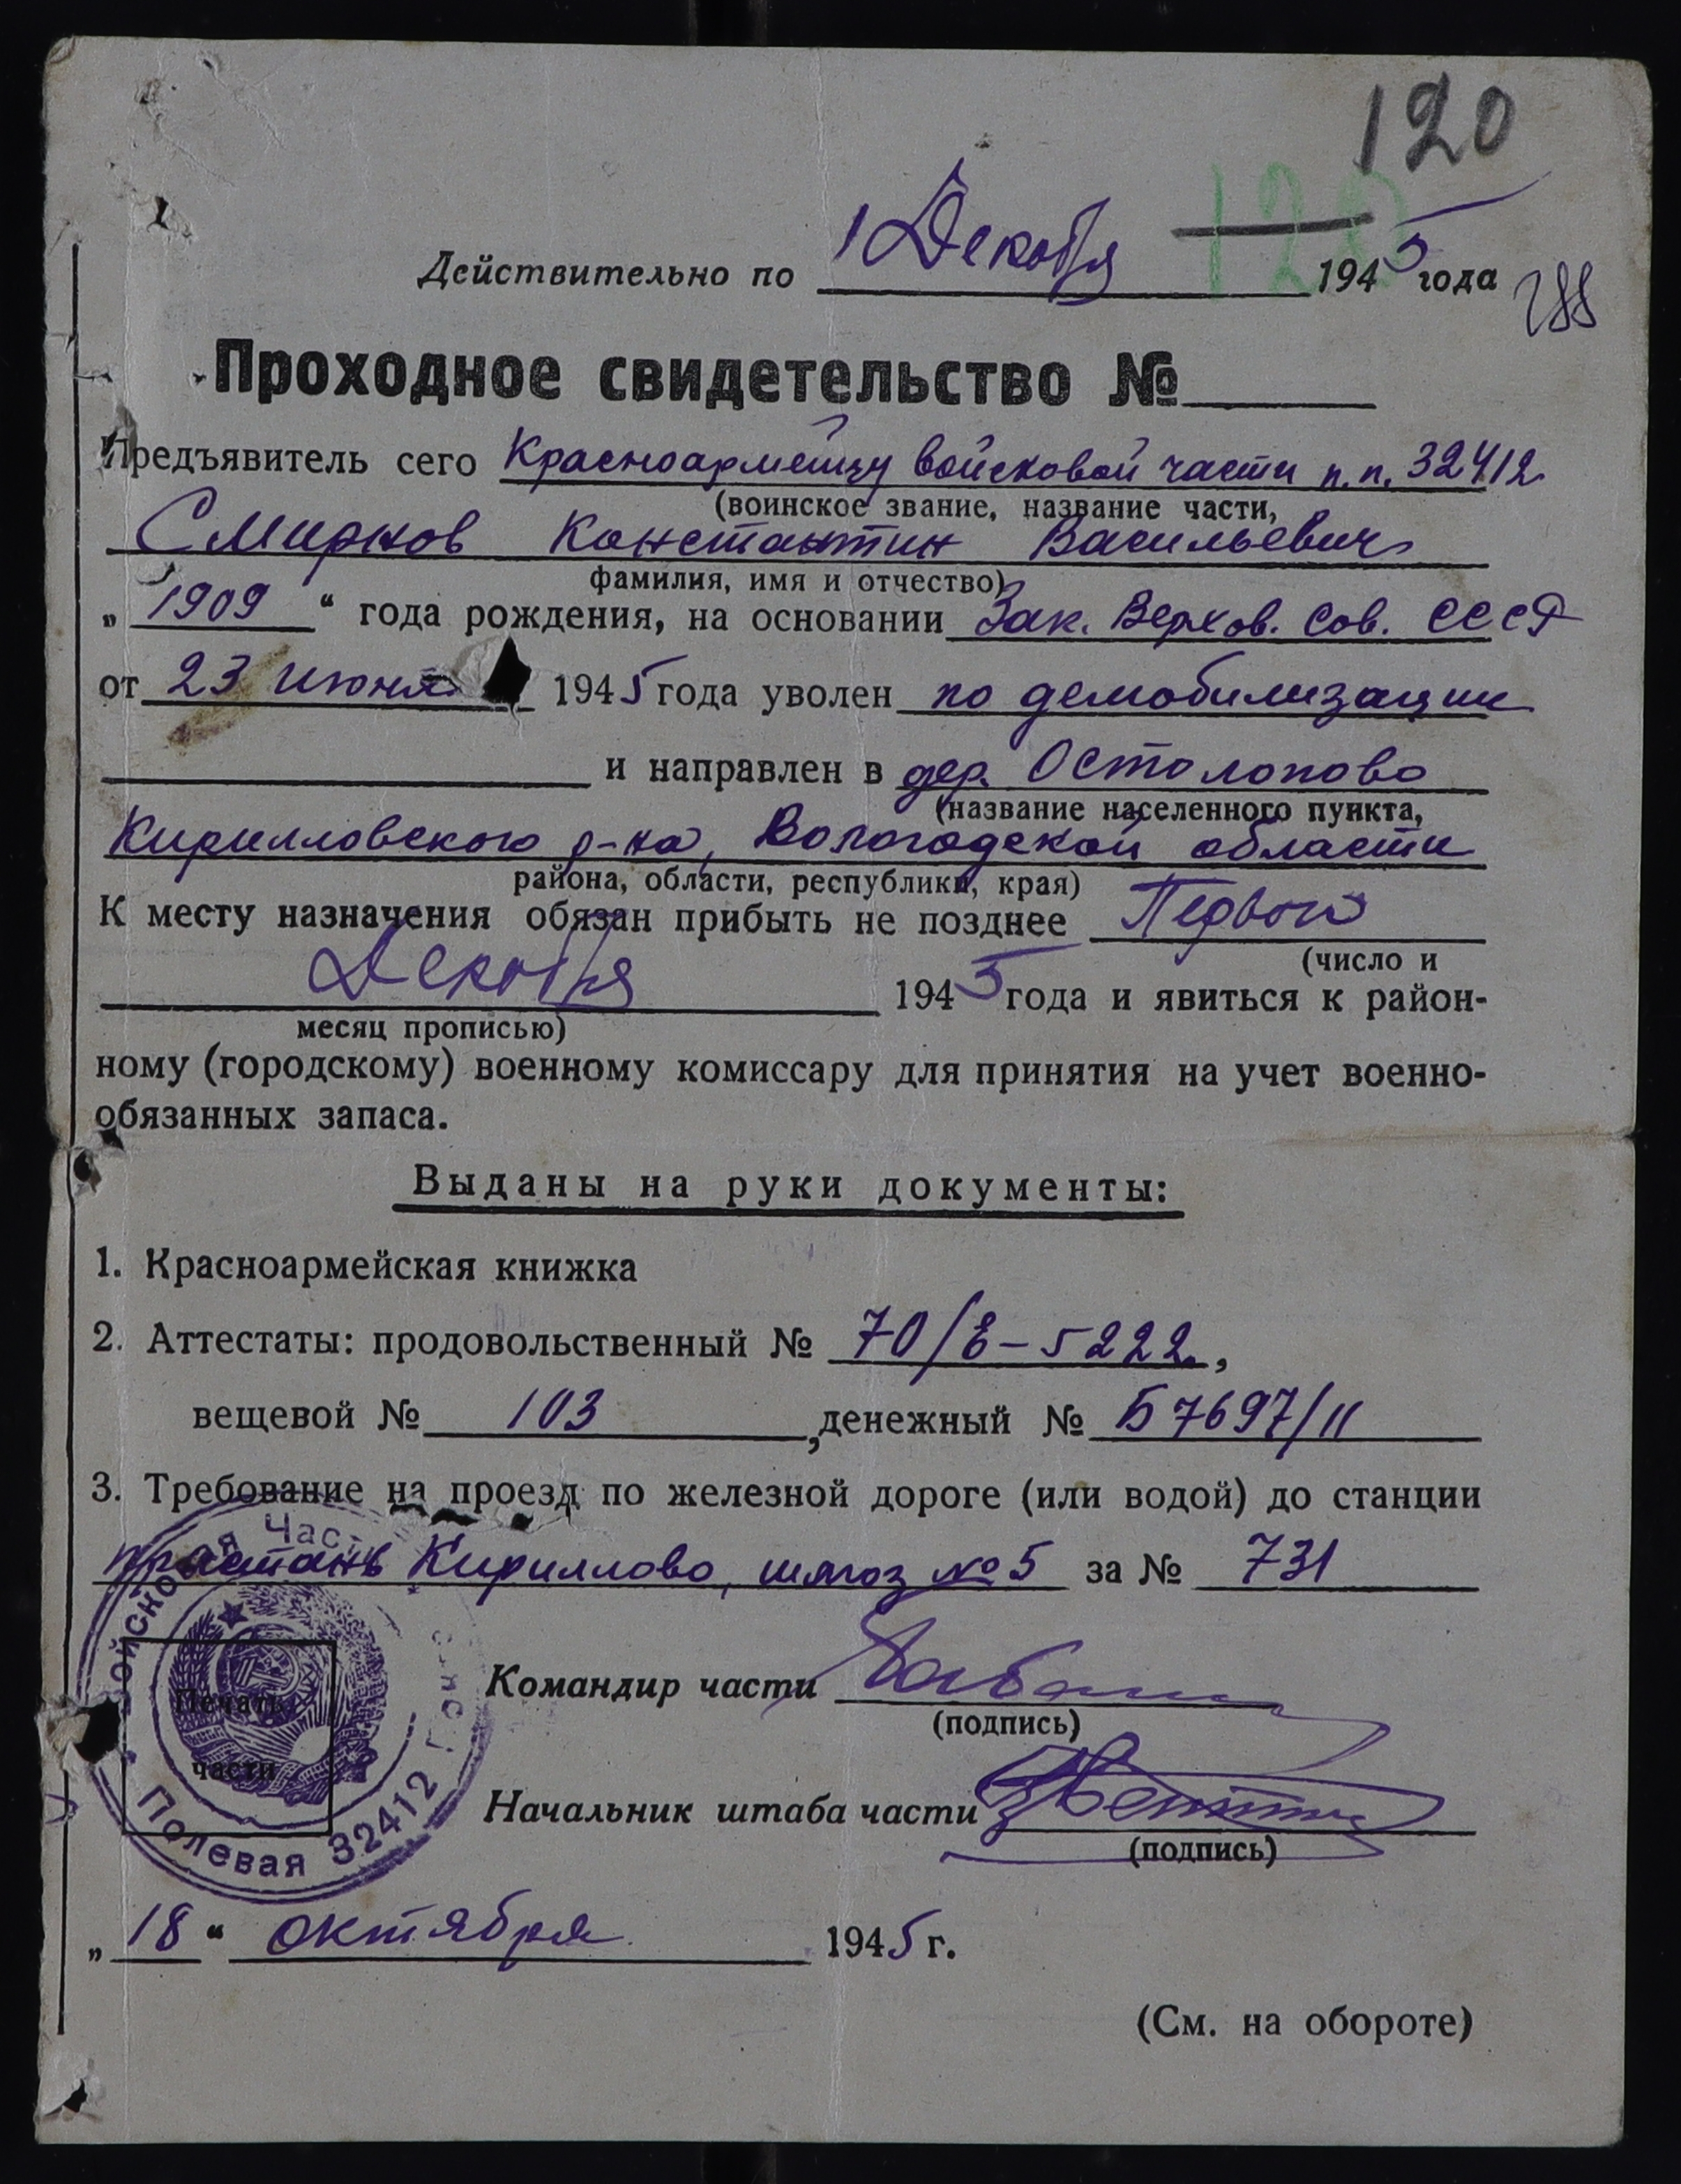 120
120
Действительно по 1 Декабря 1945 года
288
Проходное свидетельство №
Предъявитель сего Красноармейцу войсковой части п.п. 32412
(воинское звание, название части,
Смирнов Константин Васильевич
фамилия, имя и отчество)
„ 1909 “ года рождения, на основании Зак. Верхов. Сов. СССР
от 23 июня 1945 года уволен по демобилизации
и направлен в дер. Остолопово
(название населенного пункта,
Кирилловского р-на, Вологодской области
района, области, республики, края)
К месту назначения обязан прибыть не позднее Первого
(число и
Декабря 1945 года и явиться к район-
месяц прописью)
ному (городскому) военному комиссару для принятия на учет военно-
обязанных запаса.
Выданы на руки документы:
1. Красноармейская книжка
2. Аттестаты: продовольственный № 70/Е-5222,
вещевой № 103, денежный № Б7697/11
3. Требование на проезд по железной дороге (или водой) до станции
пристань Кириллово, шлюз №5 за № 731
Войсковая Часть
Полевая 32412
Печать
части
Командир части
(подпись)
Начальник штаба части
(подпись)
„ 18 “ октября 1945 г.
(См. на обороте)